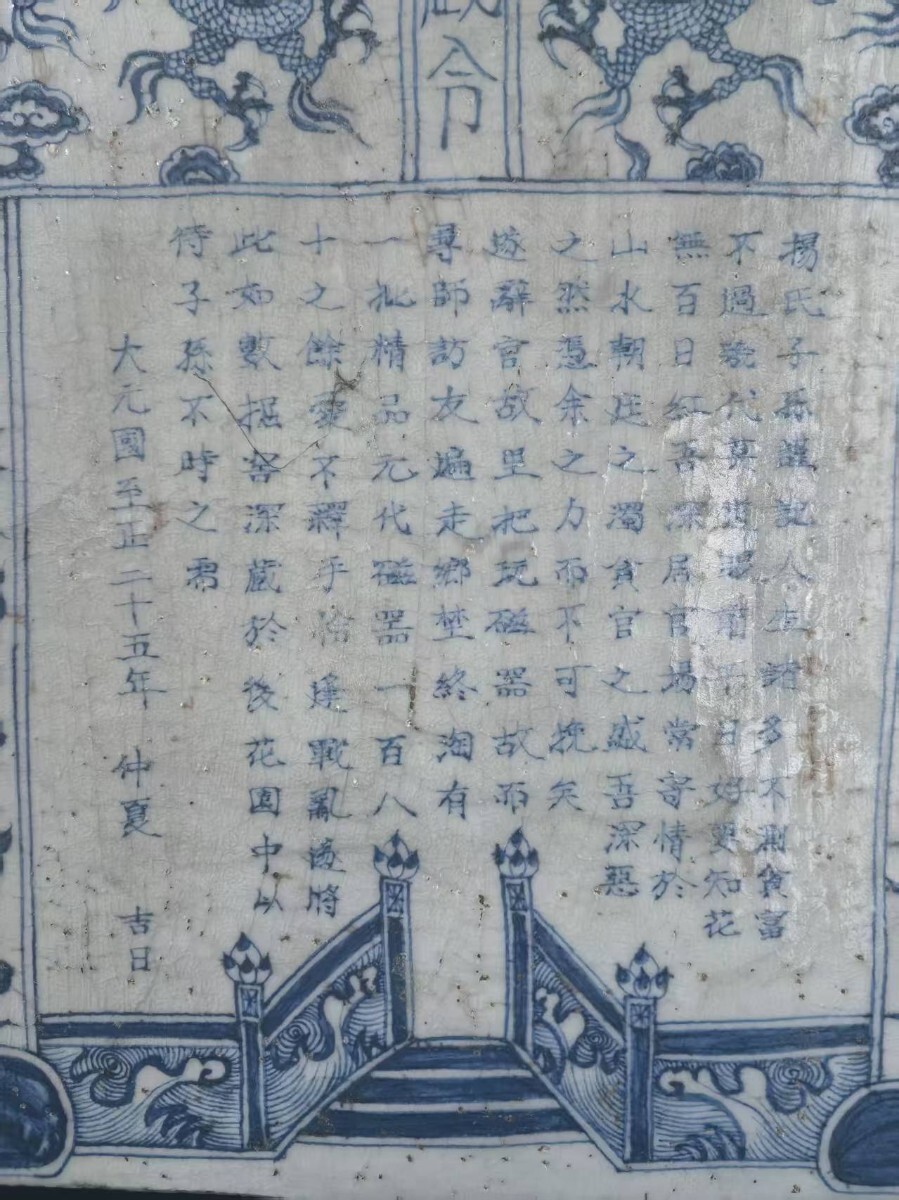 令
楊氏子孫謹記人生諸多不測貧富
不過幾代莫道瓶有千日好要知花
無百日紅吾深居官場常寄情於
山水朝廷之濁貪官之盛吾深惡
之然憑余之力而不可挽矣
遂辭官故里把玩磁器故而
尋師訪友遍走鄉埜終淘有
一批精品元代磁器一百八
十之餘愛不釋手恰逢戰亂遂將
此如數掘窖深藏於後花園中以
待子孫不時之需
大元國至正二十五年 仲夏 吉日